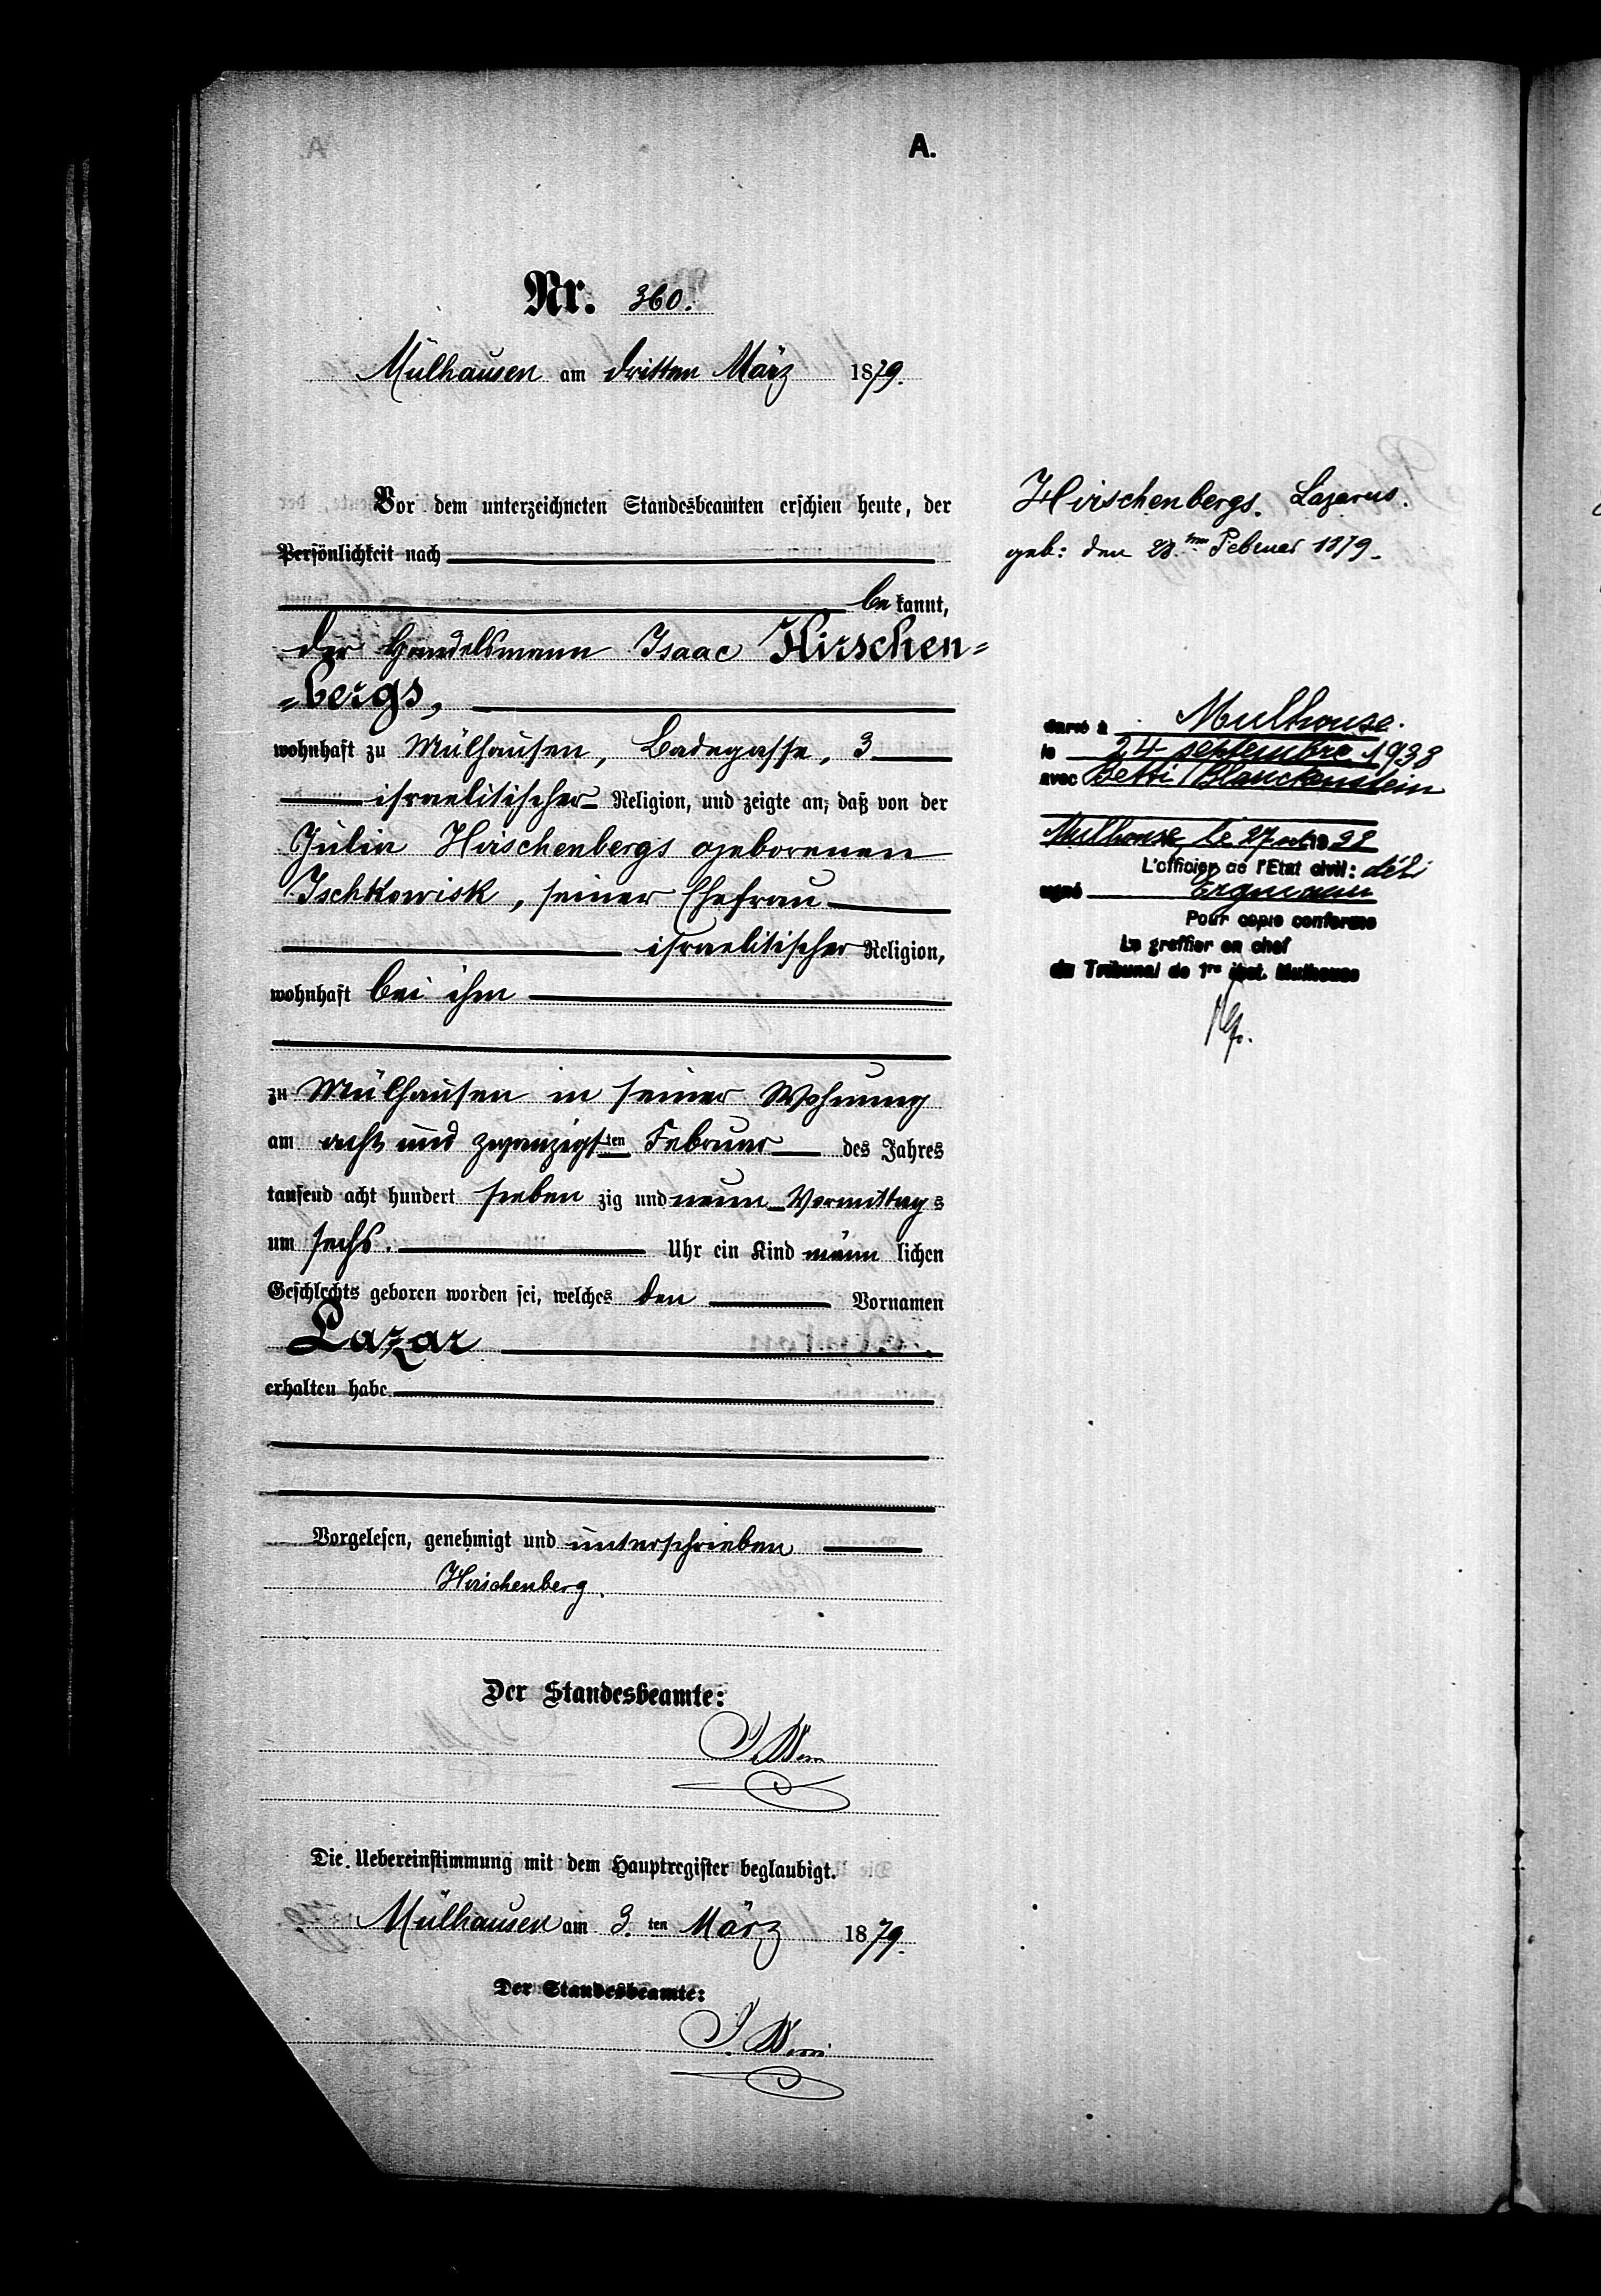 A.
Nr. 360.
Mülhausen am dritten März 1879.
Vor dem unterzeichneten Standesbeamten erschien heute, der
Persönlichkeit nach
bekannt,
der Handelsmann Isaac Hirschen=
=bergs,
wohnhaft zu Mülhausen, Badegasse, 3
israelitischer Religion, und zeigte an, daß von der
Julia Hirschenbergs geborenen
Ischkowisk, seiner Ehefrau
israelitischer Religion,
wohnhaft bei ihm
zu Mülhausen in seiner Wohnung
am acht und zwanzigsten Februar des Jahres
tausend acht hundert siebenzig und neun Vormittags
um sechs. Uhr ein Kind männlichen
Geschlechts geboren worden sei, welches den Vornamen
Lazar
erhalten habe
Vorgelesen, genehmigt und unterschrieben
Hirschenberg.
Der Standesbeamte:
Die Uebereinstimmung mit dem Hauptregister beglaubigt.
Mülhausen am 3.ten März 1879.
Der Standesbeamte:
Hirschenbergs. Lazarus.
geb: den 28.ten Februar 1879.
Marié à Mulhouse.
le 24 septembre 1938
avec Betti Blanckenstein
Mulhouse, le 27 1938
L'officier de l'Etat civil: dél.
signé
Pour copie conforme
Le greffier en chef
du Tribunal de 1re inst. Mulhouse